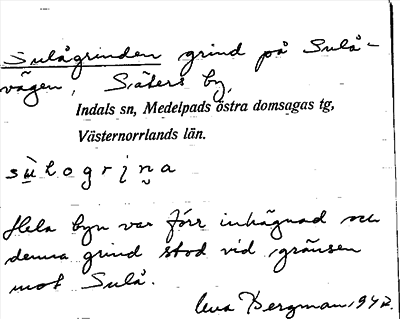 Sulågrinden grind på Sulå-
vägen, Säters by,
Indals sn, Medelpads östra domsagas tg,
Västernorrlands län.
Hela byn var förr inhägnad och
denna grind stod vid gränsen
mot Sulå.
Bergman, 1942.